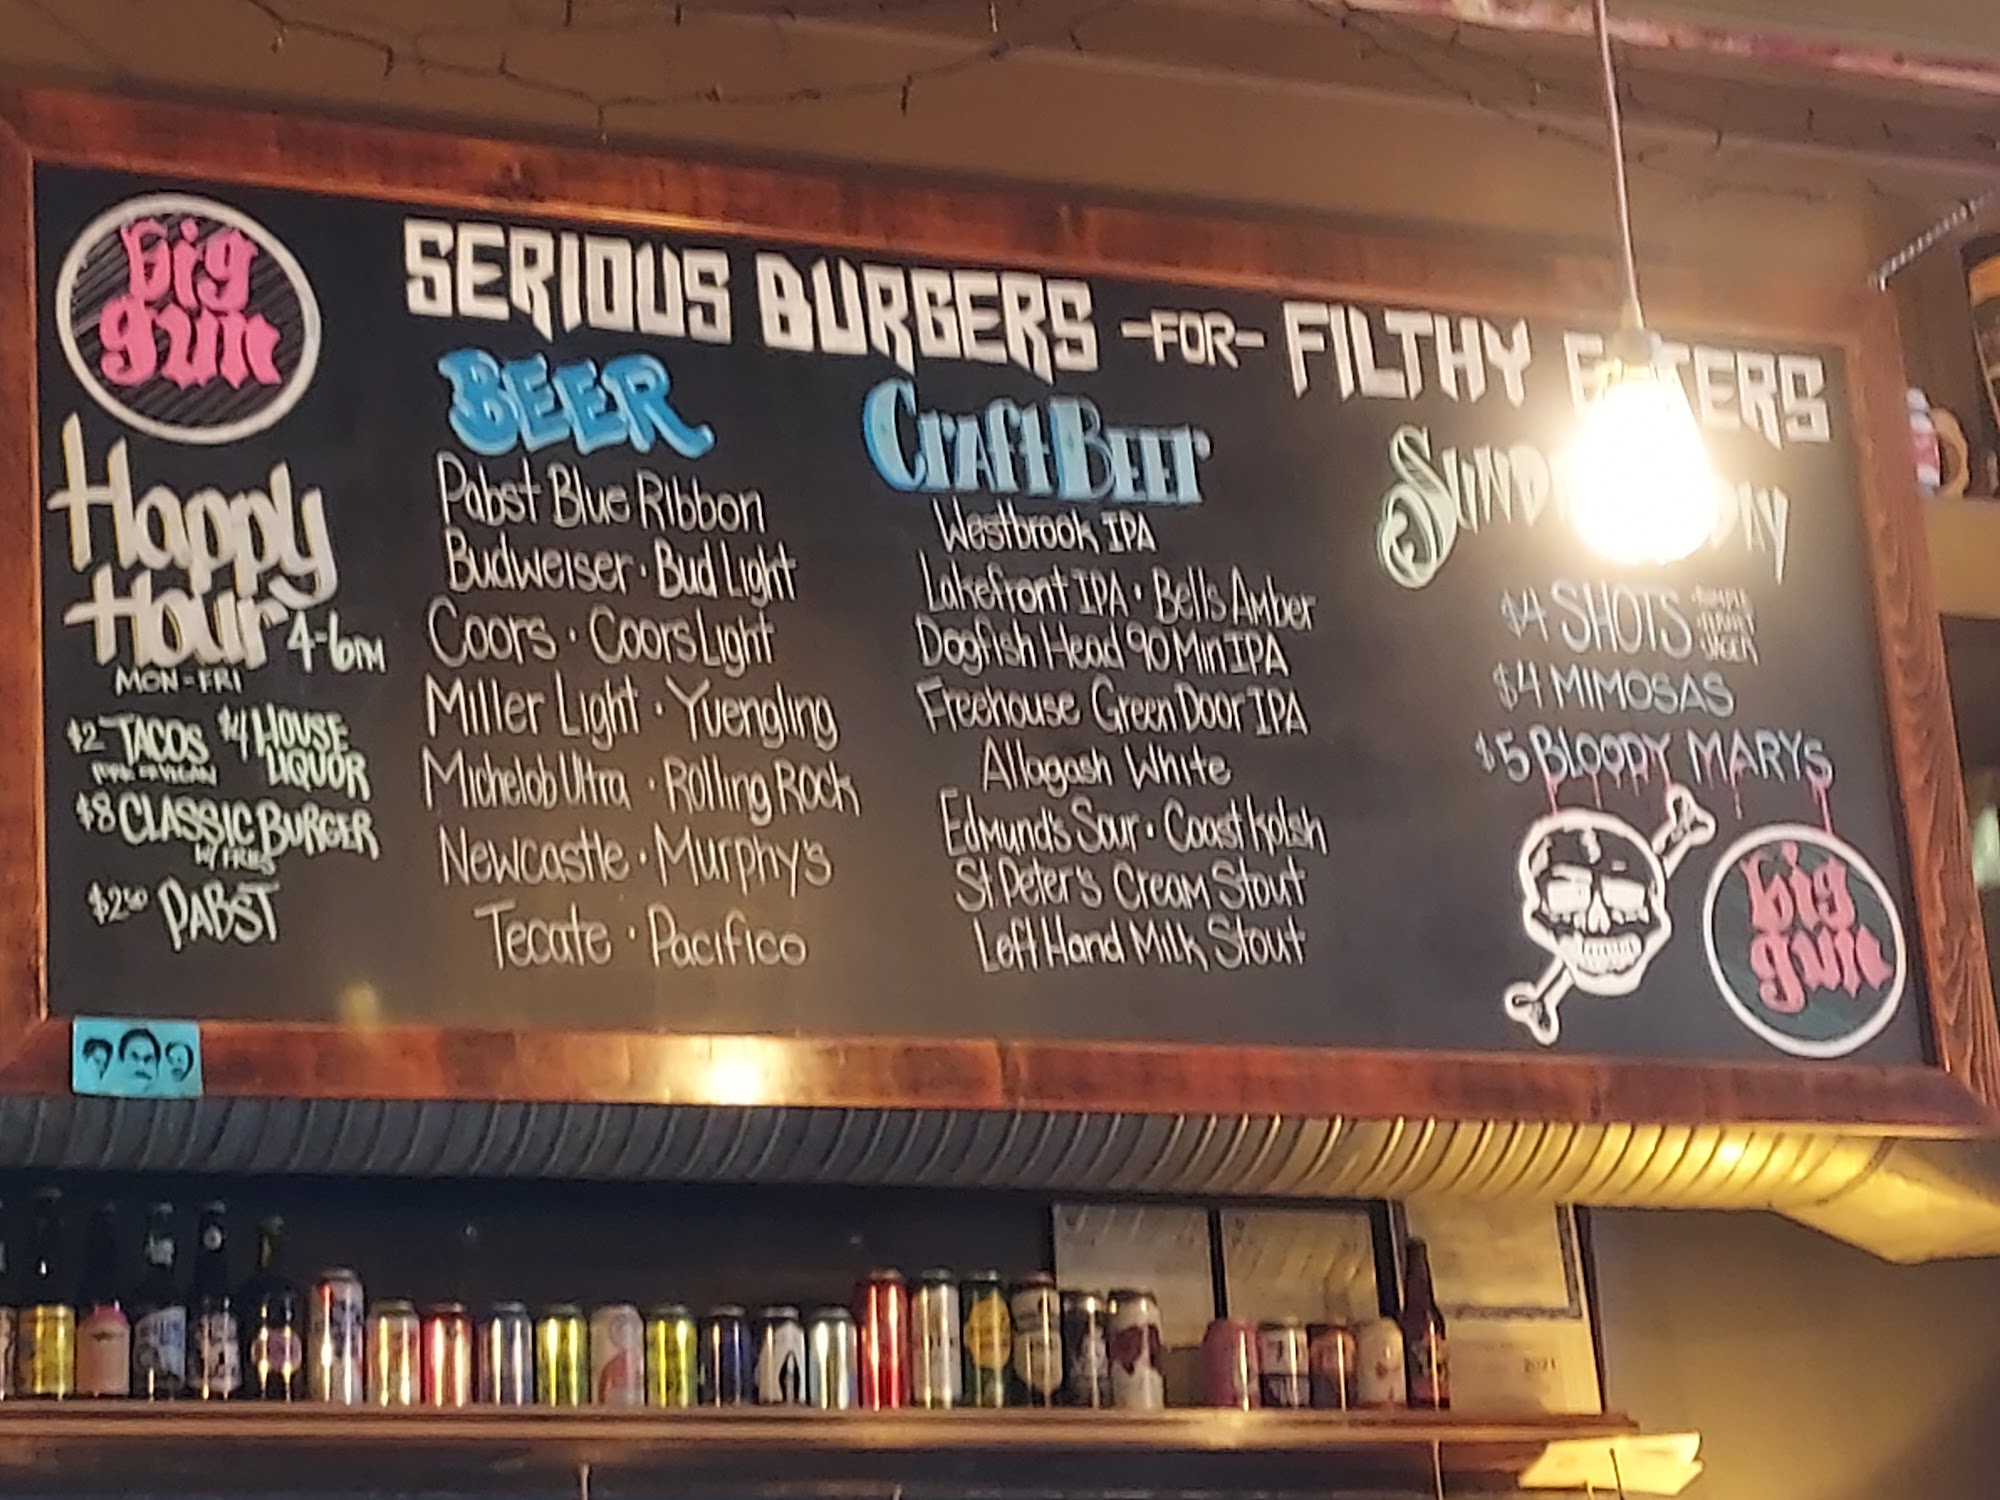 big
gun
SERIOUS BURGERS -FOR- FILTHY EATERS
Happy
Hour 4-6PM
MON-FRI
$2 TACOS
PORK or VEGAN
$4 HOUSE
LIQUOR
$8 CLASSIC BURGER
w/ FRIES
$2⁵⁰ PABST
BEER
Pabst Blue Ribbon
Budweiser · Bud Light
Coors · Coors Light
Miller Light · Yuengling
Michelob Ultra · Rolling Rock
Newcastle · Murphy's
Tecate · Pacifico
Craft Beer
Westbrook IPA
Lakefront IPA · Bells Amber
Dogfish Head 90 Min IPA
Freehouse Green Door IPA
Allagash White
Edmund's Sour · Coast Kolsh
St Peter's Cream Stout
Left Hand Milk Stout
$4 SHOTS
JAGER
$4 MIMOSAS
$5 BLOODY MARYS
big
gun
2021